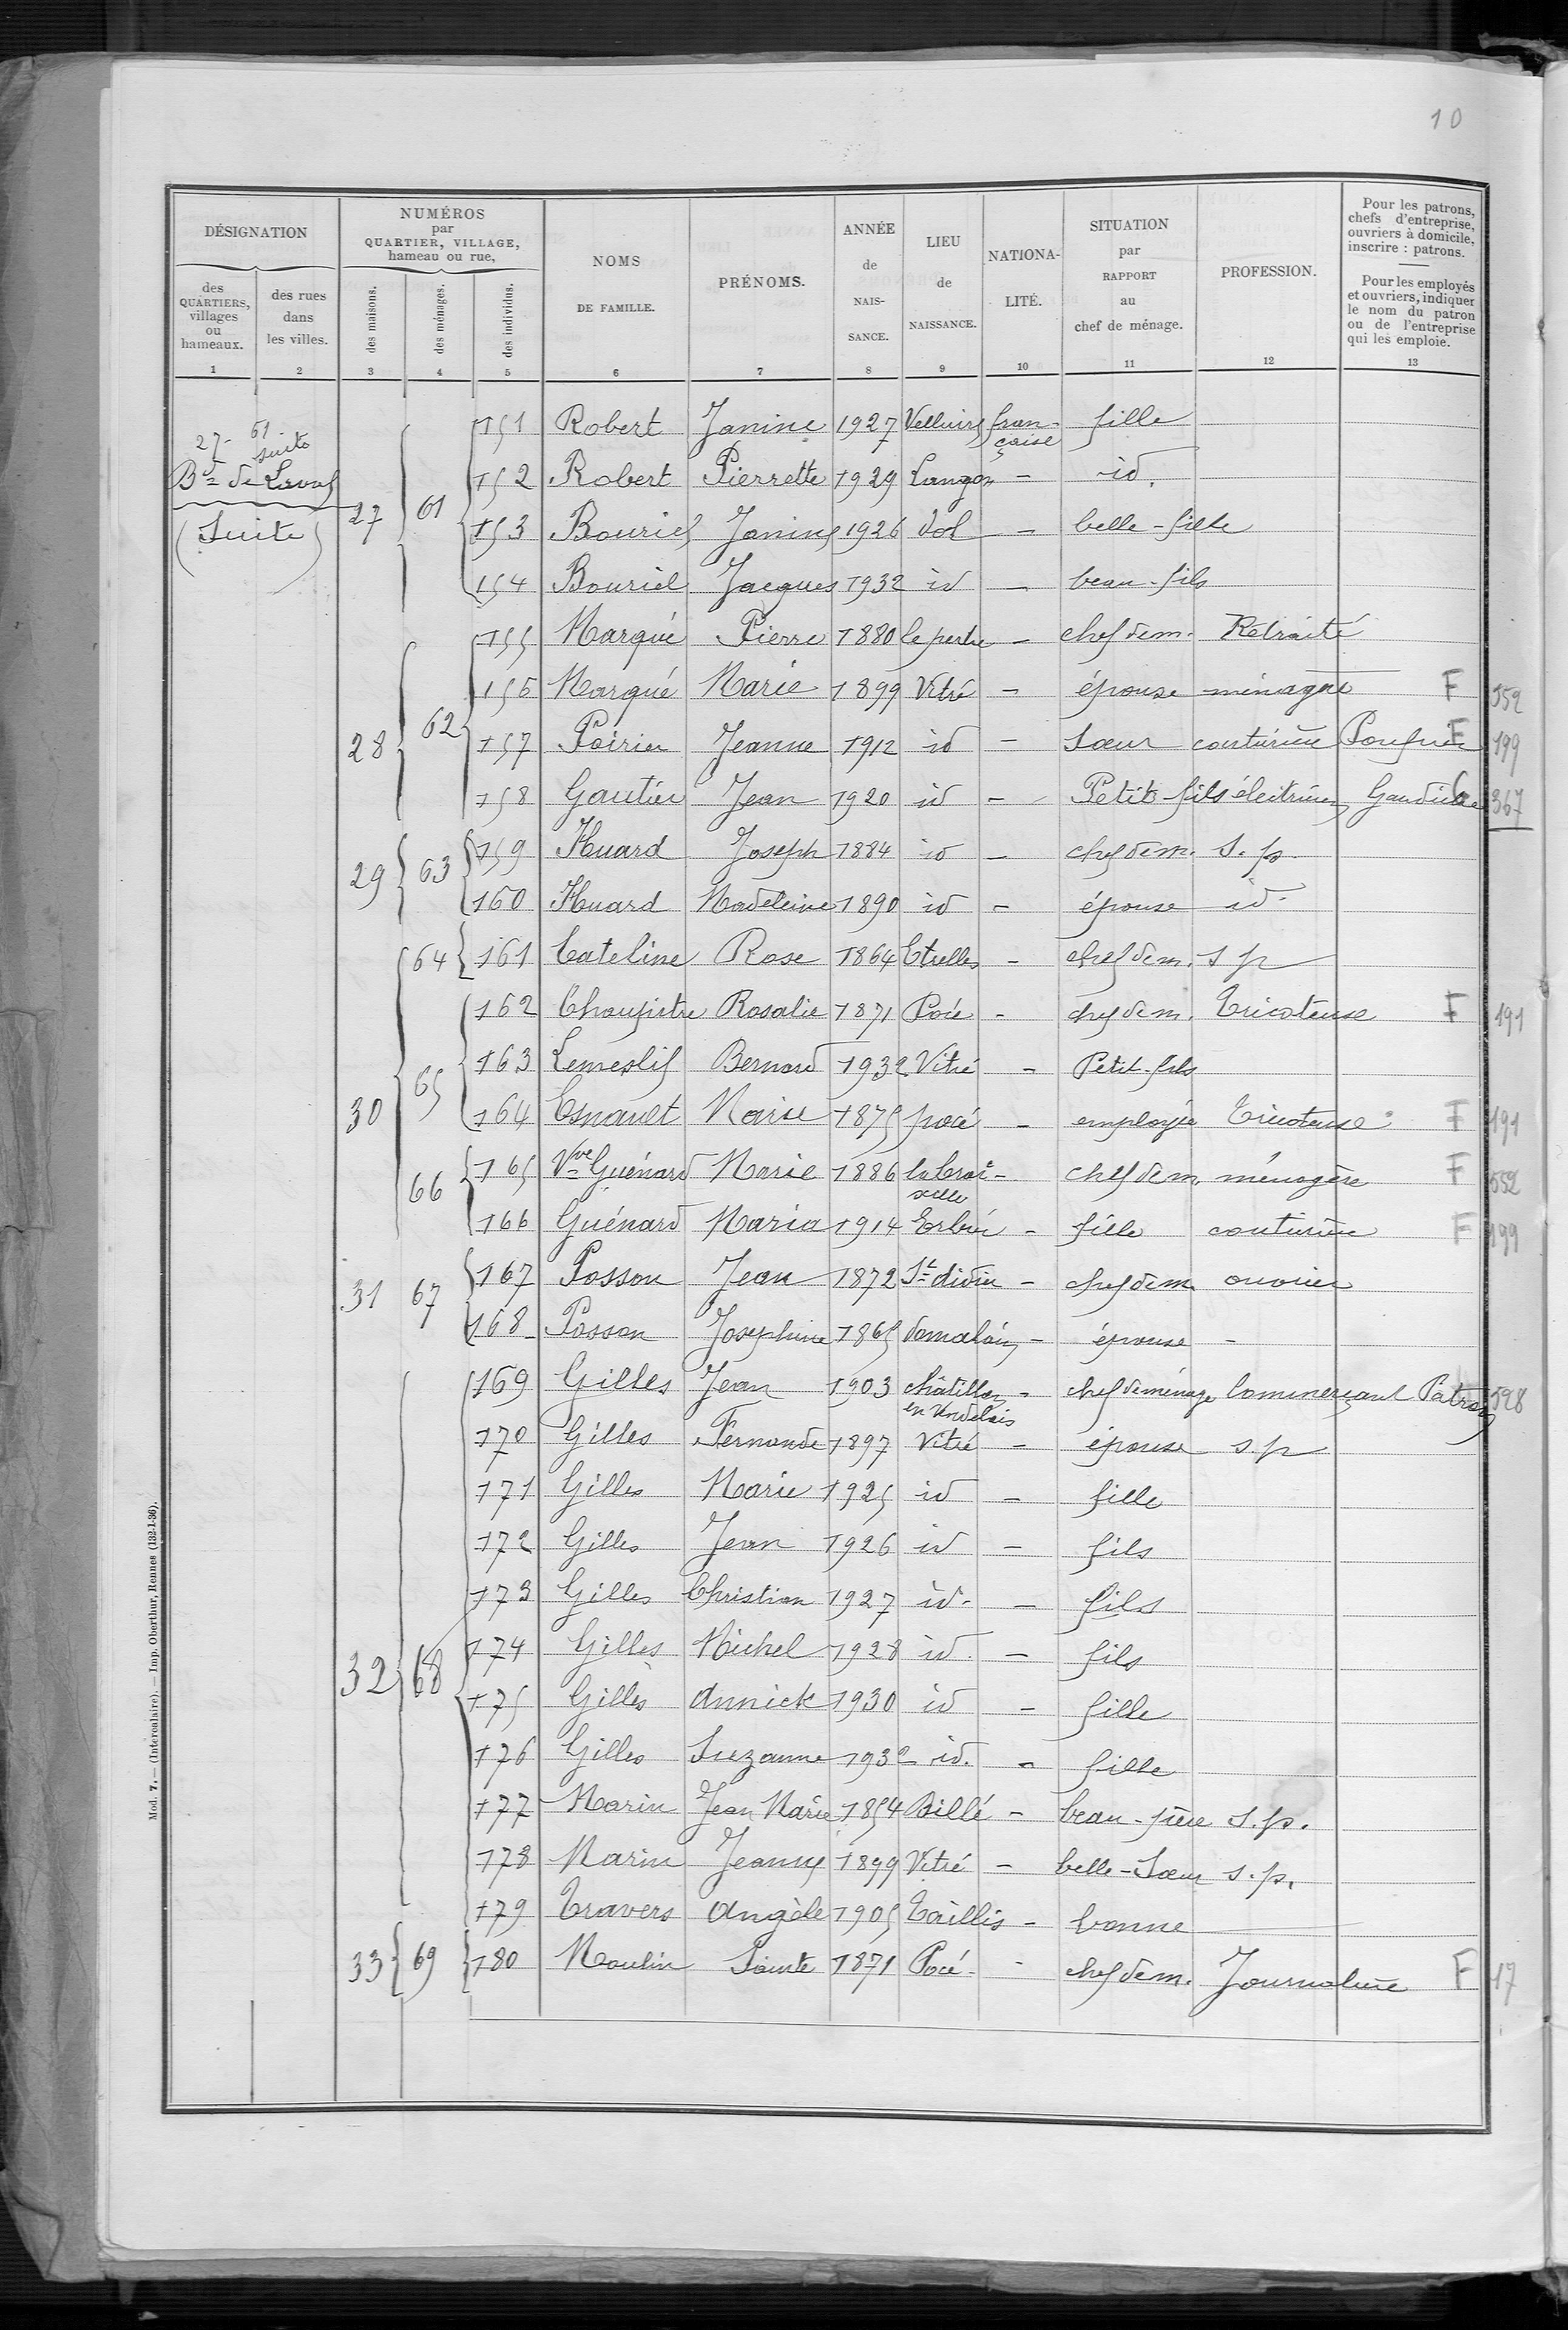 10
DÉSIGNATION
des QUARTIERS, villages ou hameaux.
des rues dans les villes.
NUMÉROS par QUARTIER, VILLAGE, hameau ou rue,
des maisons.
des ménages.
des individus.
NOMS DE FAMILLE.
PRÉNOMS.
ANNÉE de NAIS- SANCE.
LIEU de NAISSANCE.
NATIONA- LITÉ.
SITUATION par RAPPORT au chef de ménage.
PROFESSION.
Pour les patrons, chefs d'entreprise, ouvriers à domicile, inscrire : patrons.
Pour les employés et ouvriers, indiquer le nom du patron ou de l'entreprise qui les emploie.
1 2 3 4 5 6 7 8 9 10 11 12 13
27- 61- suite
Bd de Laval
(Suite)
27 61
151 Robert Janine 1927 Velluire française fille
152 Robert Pierrette 1929 Langon - id.
153 Bouriel Janine 1926 Dol - belle-fille
154 Bouriel Jacques 1932 id - beau-fils
28 62
155 Marqué Pierre 1880 le pertre - chef de m. Retraité
156 Marqué Marie 1899 Vitré - épouse ménagère F 552
157 Poirier Jeanne 1912 id - Sœur couturière F 199
158 Gautier Jean 1920 id - Petit-fils électricien 367
29 63
159 Huard Joseph 1884 id - chef de m. s.p.
160 Huard Madeleine 1890 id - épouse id.
30
64 161 Cateline Rose 1864 Etrelles - chef de m. s p
65
162 Rosalie 1871 Pocé - chef de m. Tricoteuse F 191
163 Lemeslif Bernard 1932 Vitré - Petit-fils
164 Esnault Marie 1875 pocé - employée Tricoteuse F 191
66
165 Vve Guénard Marie 1886 la Croixille - chef de m. ménagère F 552
166 Guénard Maria 1914 Erbrée - fille couturière F 199
31 67
167 Posson Jean 1872 St didier - chef de m. ouvrier
168 Posson Josephine 1865 domalain - épouse -
32 68
169 Gilles Jean 1903 châtillon en Vendelais - chef de ménage Commerçant Patron 598
170 Gilles Fernande 1897 Vitré - épouse s.p
171 Gilles Marie 1925 id - fille
172 Gilles Jean 1926 id - fils
173 Gilles Christian 1927 id. - fils
174 Gilles Michel 1928 id. - fils
175 Gilles Annick 1930 id - fille
176 Gilles Suzanne 1932 id. - fille
177 Marin Jean Marie 1854 Billé - beau-père s.p.
178 Marin Jeanne 1899 Vitré - belle-Sœur s.p.
179 Travers Angèle 1905 Taillis - bonne
33 69
180 Moulin Sainte 1871 Pocé - chef de m. Journalière F 17
Mod. 7. — (Intercalaire). — Imp. Oberthur, Rennes (132-1-36).